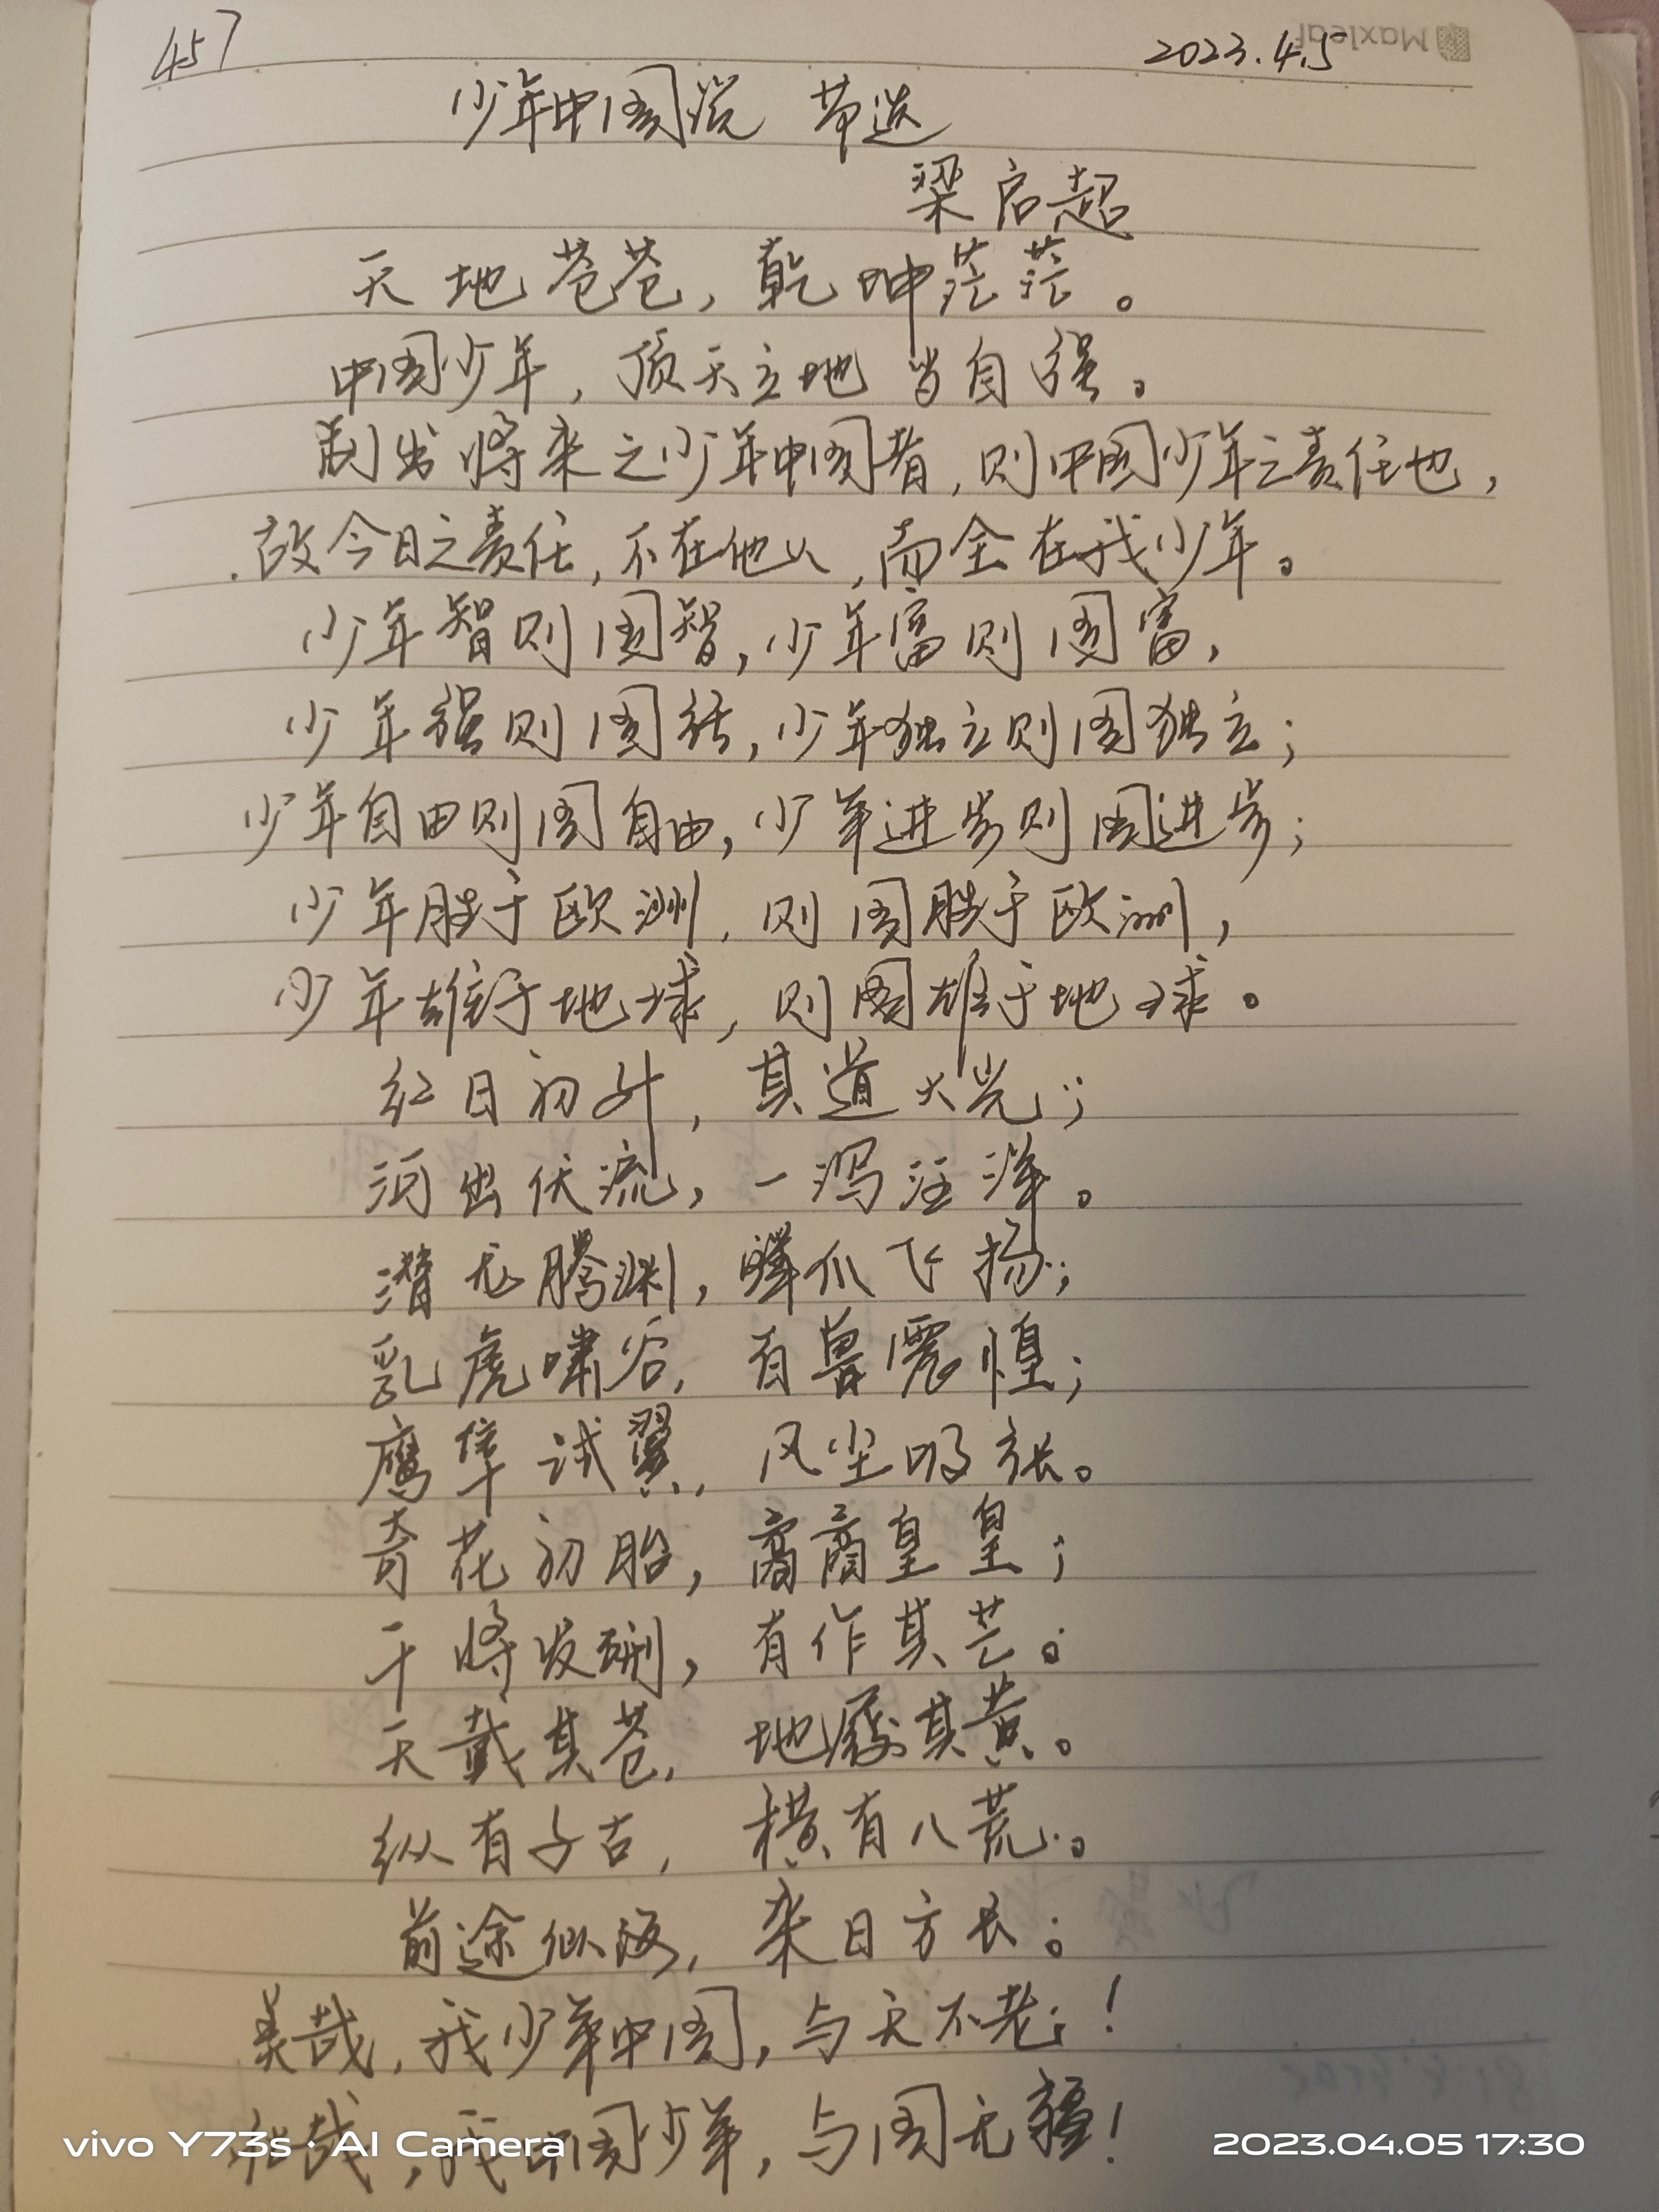 457
2023.4.5
Maxleaf
少年中国说 节选
梁启超
天地苍苍，乾坤茫茫。
中国少年，顶天立地 当自强。
制出将来之少年中国者，则中国少年之责任也，
故今日之责任，不在他人，而全在我少年。
少年智则国智，少年富则国富，
少年强则国强，少年独立则国独立；
少年自由则国自由，少年进步则国进步；
少年胜于欧洲，则国胜于欧洲，
少年雄于地球，则国雄于地球。
红日初升，其道大光；
河出伏流，一泻汪洋。
潜龙腾渊，鳞爪飞扬；
乳虎啸谷，百兽震惶；
鹰隼试翼，风尘吸张。
奇花初胎，矞矞皇皇；
干将发硎，有作其芒。
天戴其苍，地履其黄。
纵有千古，横有八荒。
前途似海，来日方长。
美哉，我少年中国，与天不老！
壮哉，我中国少年，与国无疆！
vivo Y73s · AI Camera
2023.04.05 17:30